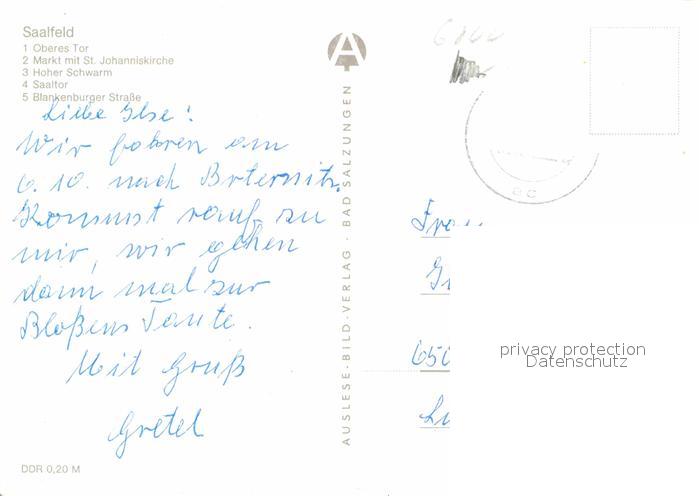 Saalfeld
1 Oberes Tor
2 Markt mit St. Johanniskirche
3 Hoher Schwarm
4 Saaltor
5 Blankenburger Straße
Liebe Ilse!
Wir fahren am
6. 10. nach
Kommst rauf zu
mir, wir gehen
dann mal zur
Bloßens Tante.
Mit Gruß
Gretel
DDR 0,20 M
AUSLESE-BILD-VERLAG · BAD SALZUNGEN
A
Fra
650
privacy protection
Datenschutz